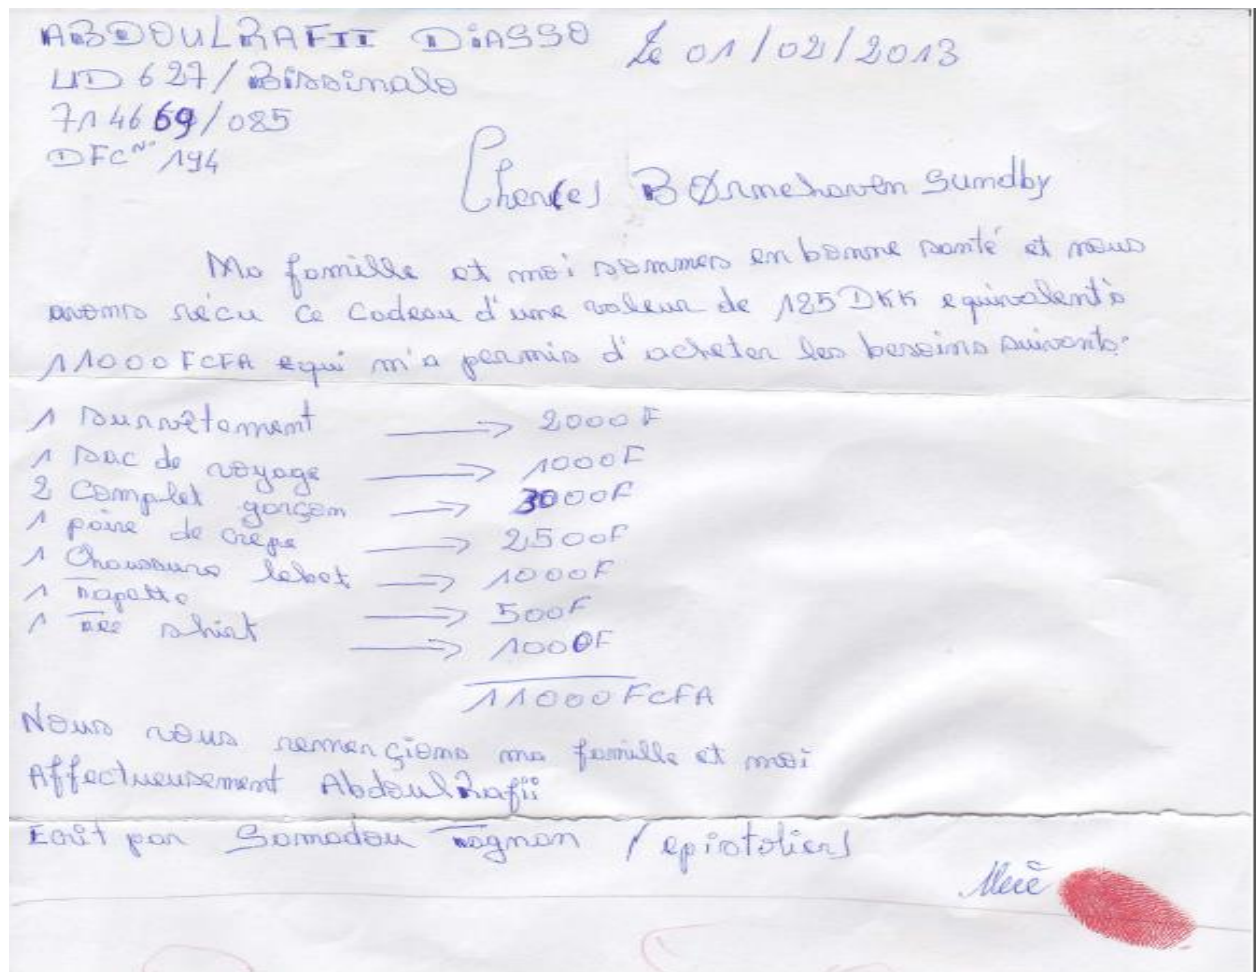 ABDOULRAFII DiASSO
Le 01/02/2013
UD 627/Bissinalo
714669/085
DFC N° 194
Cher(e) BØrnehaven Sundby
Ma famille et moi sommes en bonne santé et nous
avons récu ce Cadeau d'une valeur de 125 DKK equivalent à
11000 FCFA equi m'a permis d'acheter les besoins suivants:
1 Survêtement → 2000F
1 Sac de voyage → 1000F
2 Complet garçon → 3000F
1 paire de crêpe → 2500F
1 Chaussure lebet → 1000F
1 Tapette → 500F
1 Tee shirt → 1000F
11000 FCFA
Nous vous remerçions ma famille et moi
Affectueusement AbdoulRafii
Ecrit par Samadou Tagnan / epistolier